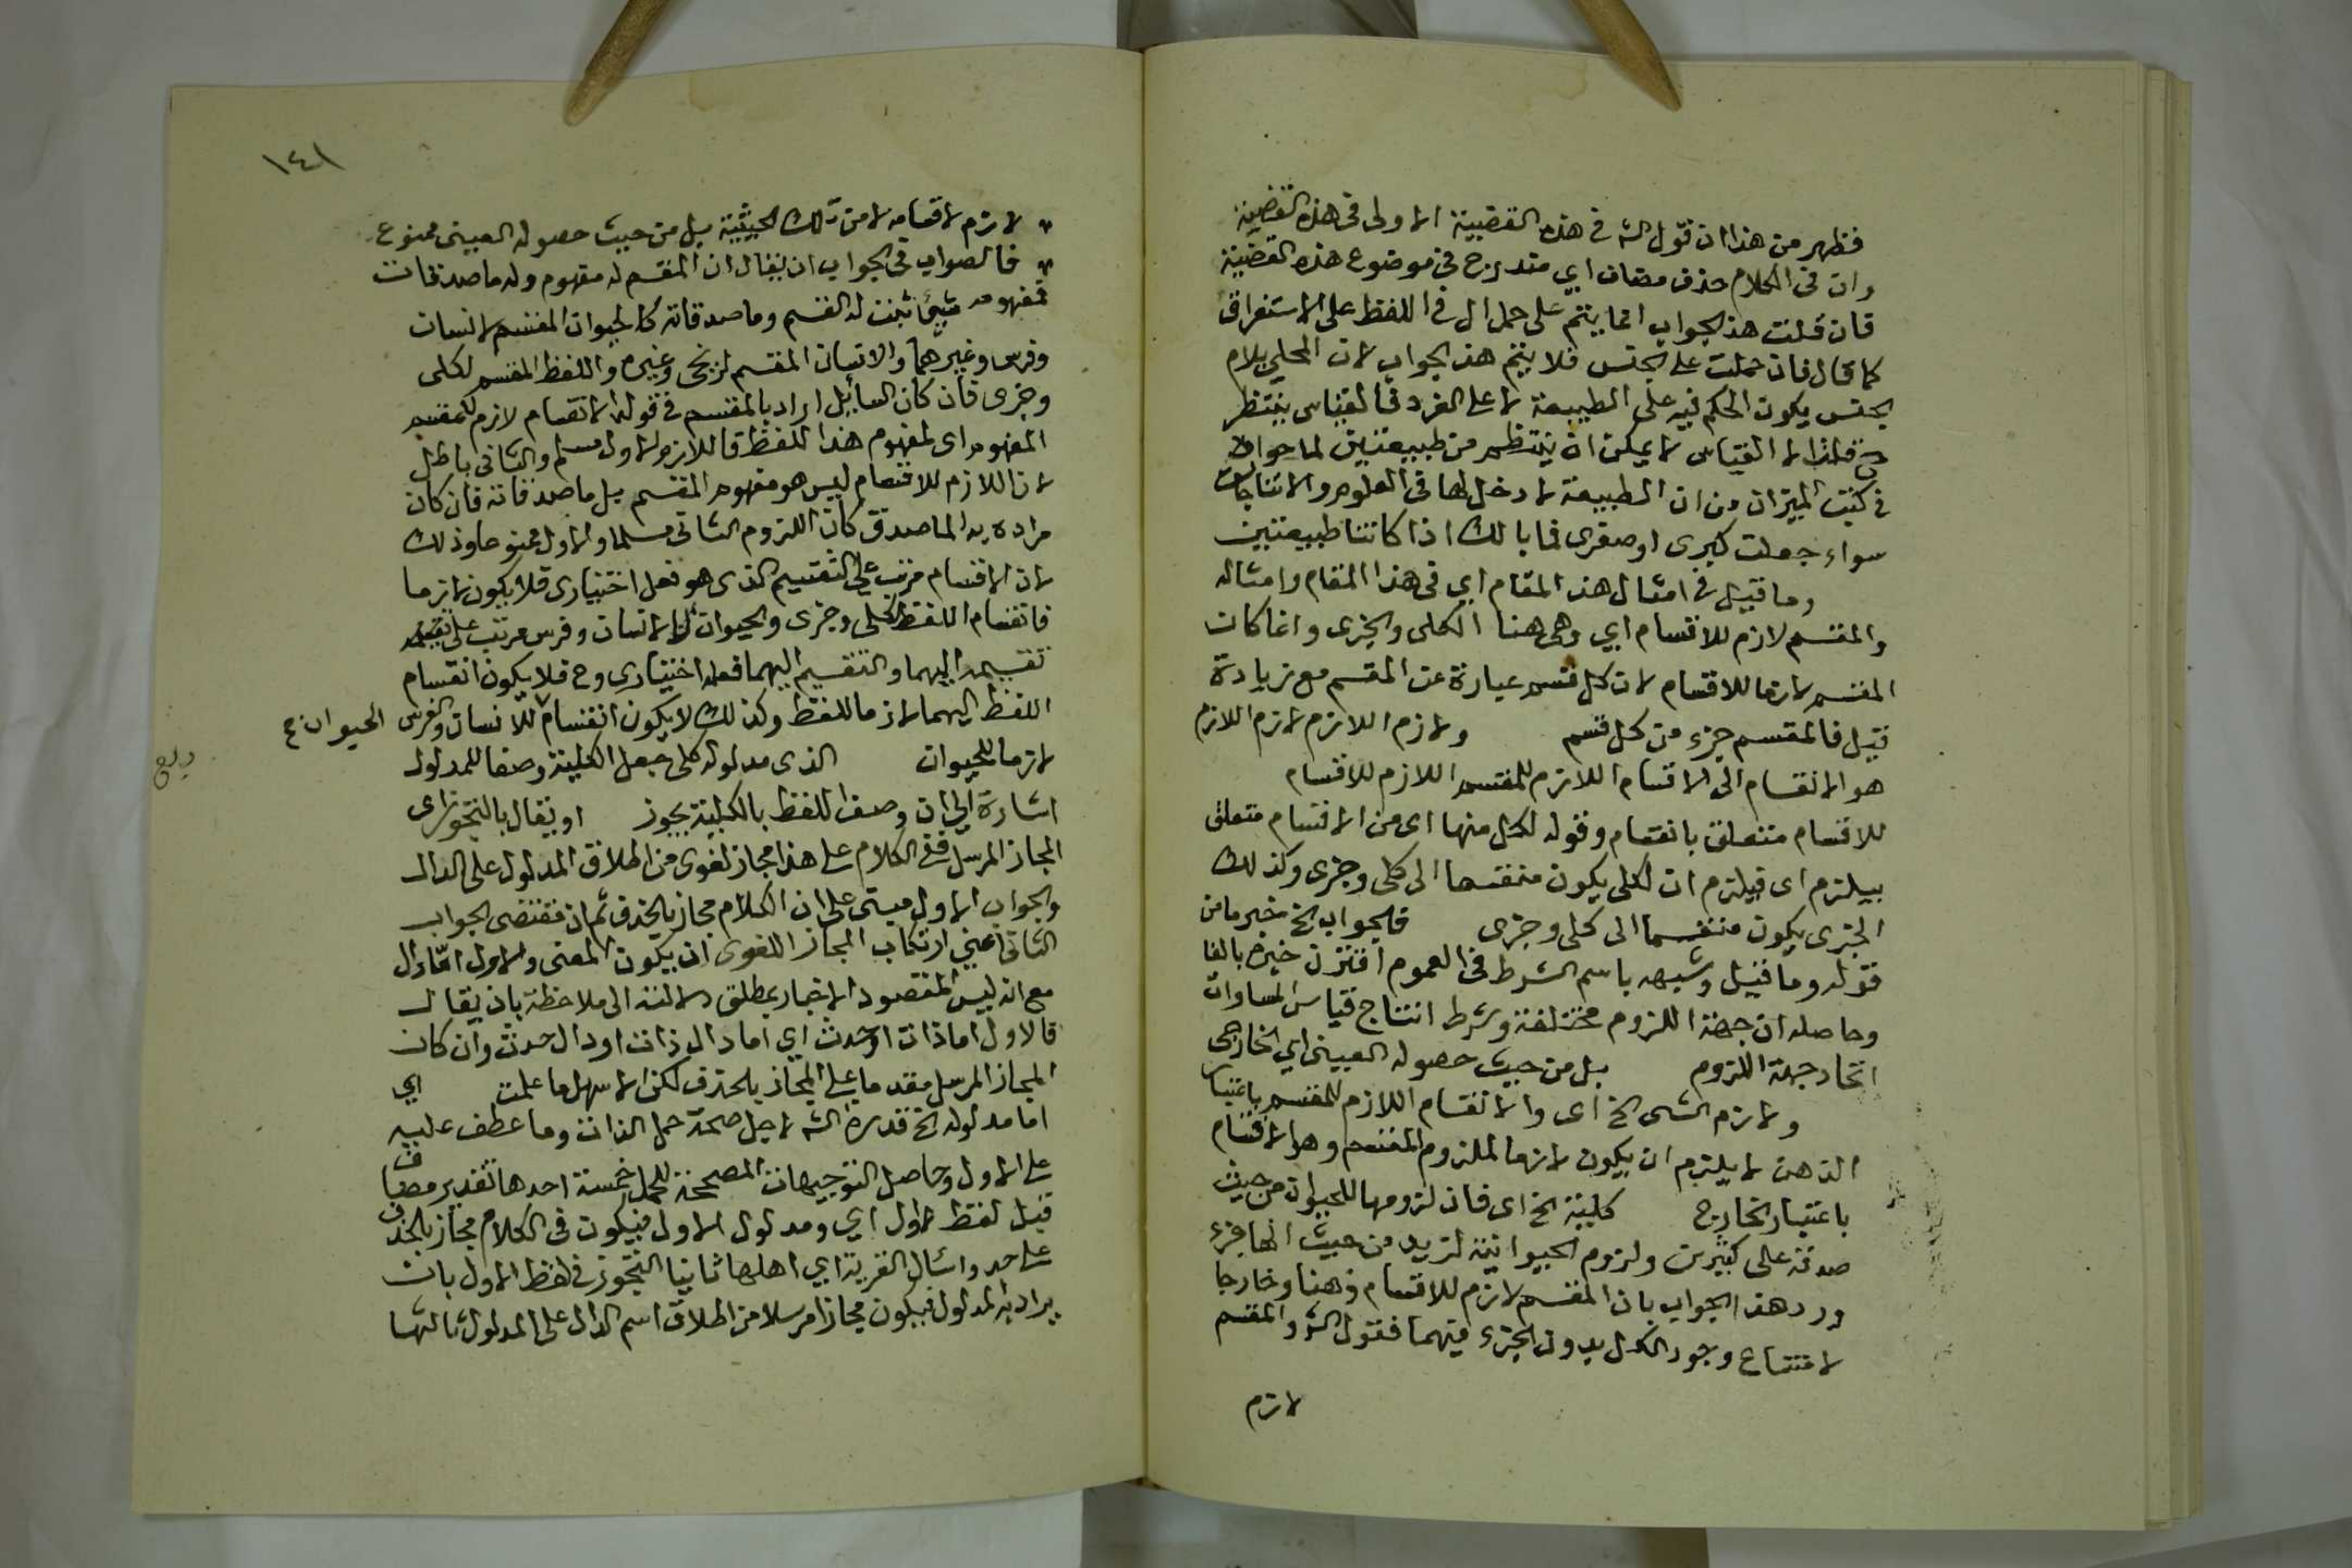 فظهر من هذا ان قول الشه في هذه القضية الاولى في هذه القضية
وان في الكلام حذف مضاف اي مندرج في موضوع هذه القضية
فان قلت هذا الجواب انما يتم على حمل ال في اللفظ على الاستغراق
كما قال فان حملت على الجنس فلا يتم هذا الجواب لان المحلي بلام
الجنس يكون الحكم فيه على الطبيعة لا على الفرد فالقياس ينتظر
ح قلنا لا القياس لا يمكن ان ينتظم من طبيعتين لما حواه
في كتب الميزان من ان الطبيعة لا دخل لها في العلوم والانتاجات
سواء جعلت كبرى او صغرى فما بالك اذا كانتا طبيعتين
وما قيل في امثال هذا المقام اي في هذا المقام وامثاله
والمقسم لازم للاقسام اي وهي هنا الكلى والجزى وانما كان
المقسم لازما للاقسام لان كل قسم عبارة عن المقسم مع زيادة
قيل فالمقسم جزء من كل قسم ولازم اللازم لازم اللازم
هو الانقسام الى الاقسام اللازم للمقسم اللازم للاقسام
للاقسام متعلق بانقسام وقوله لكل منها اى من الاقسام متعلق
بيلزم اى فيلزم ان لكلى يكون منقسما الى كلى وجزى وكذلك
الجزى يكون منقسما الى كلى وجزى فالجواب الخ خبر ما من
قوله وما قيل وشبهه باسم الشرط في العموم اقترن خبره بالفا
وحاصله ان جهة اللزوم مختلفة وشرط انتاج قياس المساوات
اتحاد جهة اللزوم بل من حيث حصوله العينى اي الخارجى
ولازم الشى الخ اى والانقسام اللازم للمقسم باعتبار
الذهن لا يلزم ان يكون لازما لملزوم المقسم وهو الاقسام
باعتبار الخارج كلية الخ اى فان لزومها للحيوان من حيث
صدقه على كثيرين ولزوم الحيوانية لزيد من حيث انها جزء
ورد هذا الجواب بان المقسم لازم للاقسام ذهنا وخارجا
لامتناع وجود الكل بدون الجزء فيهما فقول الشه والمقسم
لازم
١٤١
لازم لاقسامه لا من تلك الحيثية بل من حيث حصوله العينى ممنوع
فالصواب في الجواب ان يقال ان المقسم له مفهوم وله ماصدقات
فمفهومه شيئ ثبت له القسم وماصدقاته كالحيوان المقسم لانسان
وفرس وغيرهما والانسان المقسم لزنجى وغيره واللفظ المقسم لكلى
وجزى فان كان السايل اراد بالمقسم في قوله الانقسام لازم للمقسم
المفهوم اى لمفهوم هذا اللفظ فاللازم الاول مسلم والثانى باطل
لان اللازم للاقسام ليس هو مفهوم المقسم بل ماصدقاته فان كان
مراده به الماصدق كان اللزوم الثانى مسلما والاول ممنوعا وذلك
لان الانقسام مرتب على التقسيم الذى هو فعل اختيارى فلا يكون لازما
فانقسام اللفظ لكلى وجزى والحيوان الى الانسان وفرس مرتب على
تقسيمه اليهما والتقسيم اليهما فعل اختيارى وح فلا يكون انقسام
اللفظ اليهما لازما للفظ وكذلك لا يكون انقسام للانسان والفرس
الحيوان ع
لازما للحيوان الذى مدلوله كلى جعل الكلية وصفا للمدلول
اشارة الى ان وصف اللفظ بالكلية يجوز او يقال بالتجوز اى
المجاز المرسل ففى الكلام على هذا مجاز لغوى من اطلاق المدلول على الدال
والجواب الاول مبنى على ان الكلام مجاز بالحذف ثم ان مقتضى الجواب
الثانى اعني ارتكاب المجاز اللغوى ان يكون المعنى والاول اما دال
مع انه ليس المقصود الاخبار بمطلق دلالته الى ملاحظة بان يقال
فالاول اما ذات او حدث اي اما دال ذات او دال حدث وان كان
المجاز المرسل مقدما على المجاز بالحذف لكن الاسهل ما علمت اي
اما مدلوله الخ قدره الشه لاجل صحة حمل الذات وما عطف عليه
على الاول وحاصل التوجيهات المصححة للحمل خمسة احدها تقدير مضاف
قبل لفظ الاول اي ومدلول الاول فيكون في الكلام مجاز بالحذف
على حد واسال القرية اي اهلها ثانيا التجوز في لفظ الاول بان
يراد به المدلول فيكون مجازا مرسلا من اطلاق اسم الدال على المدلول ثالثها